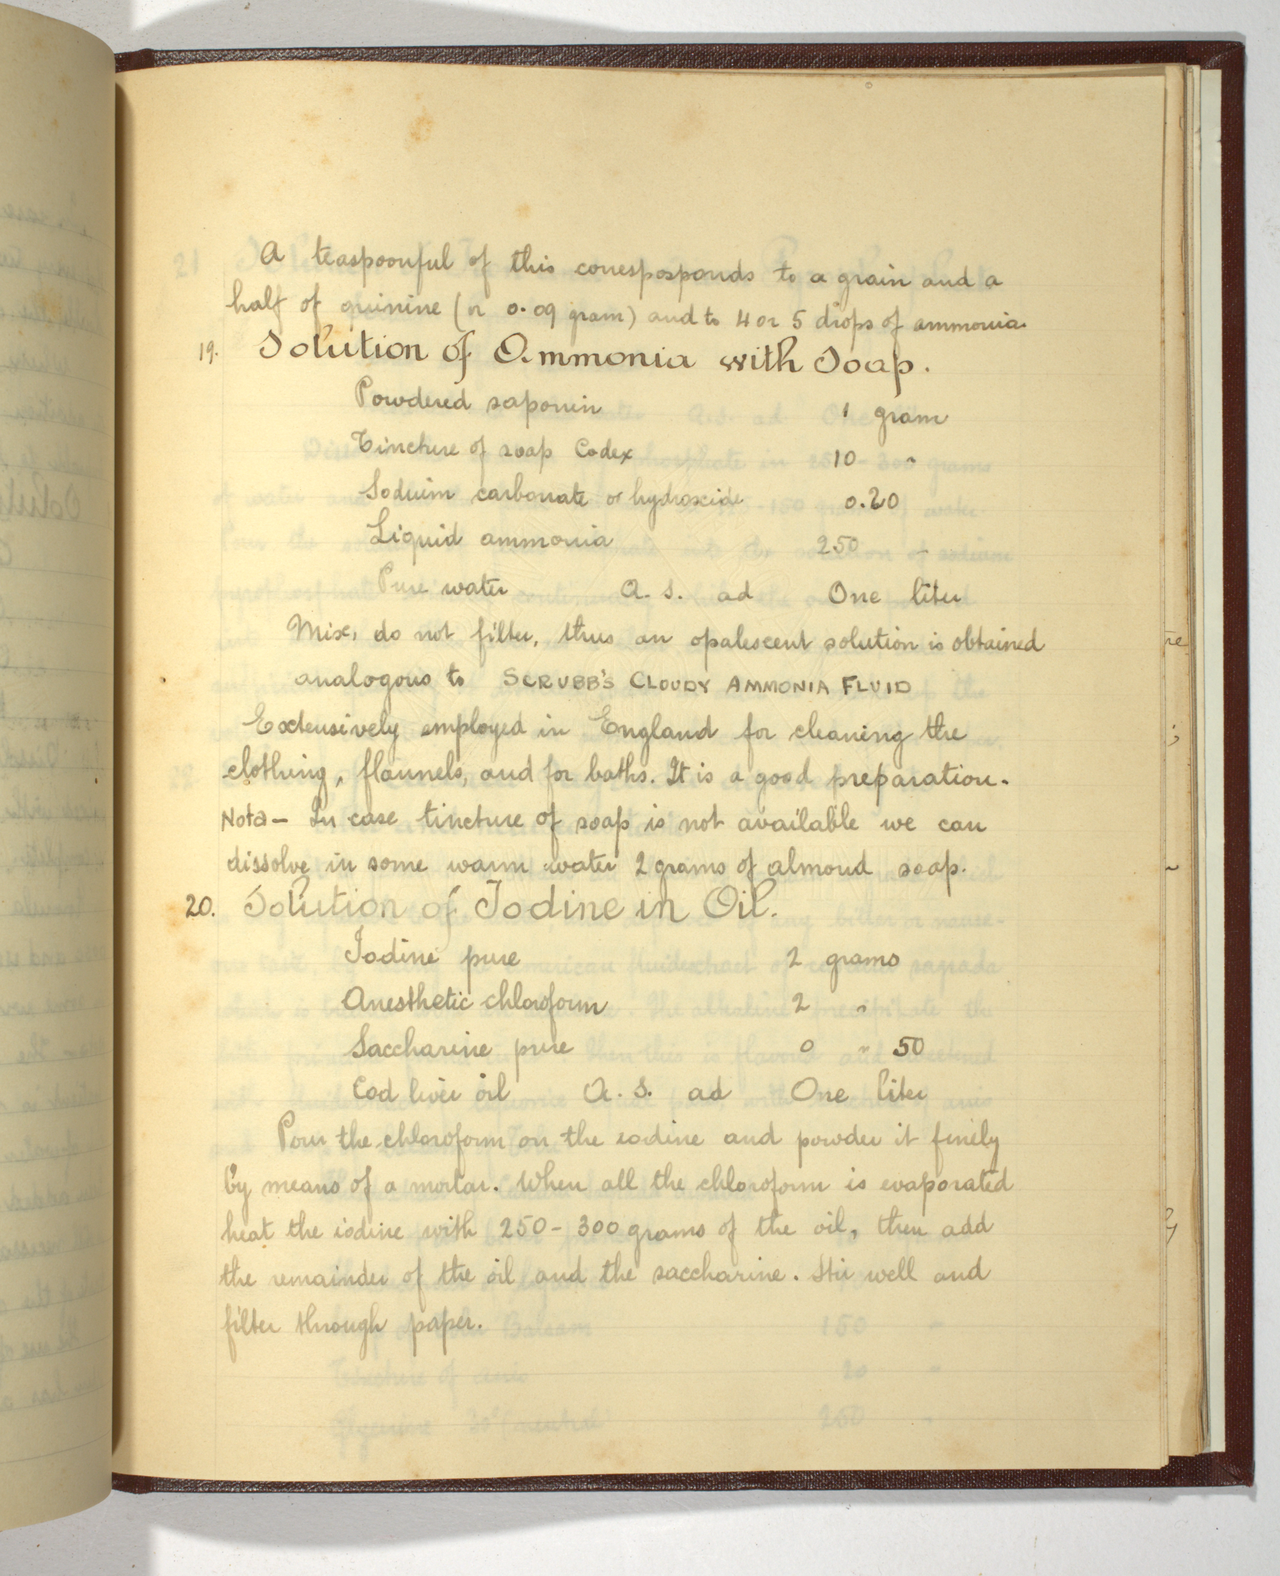 A teaspoonful of this corresposponds to a grain and a
half of quinine (or 0.09 gram) and to 4 or 5 drops of ammonia.
19. Solution of Ammonia with Soap.
Powdered saponin 1 gram
Tincture of soap Codex 10 "
Soduim carbonate or hydroxide 0.20
Liquid ammonia 250 "
Pure water Q. S. ad One liter
Mix, do not filter, thus an opalescent solution is obtained
analogous to SCRUBB'S CLOUDY AMMONIA FLUID
Extensively employed in England for cleaning the
clothing, flannels, and for baths. It is a good preparation.
Nota — In case tincture of soap is not available we can
dissolve in some warm water 2 grams of almond soap.
20. Solution of Iodine in Oil.
Iodine pure 2 grams
Anesthetic chloroform 2 "
Saccharine pure 0 " 50
Cod liver oil Q. S. ad One liter
Pour the chloroform on the iodine and powder it finely
by means of a mortar. When all the chloroform is evaporated
heat the iodine with 250 - 300 grams of the oil, then add
the remainder of the oil and the saccharine. Stir well and
filter through paper.